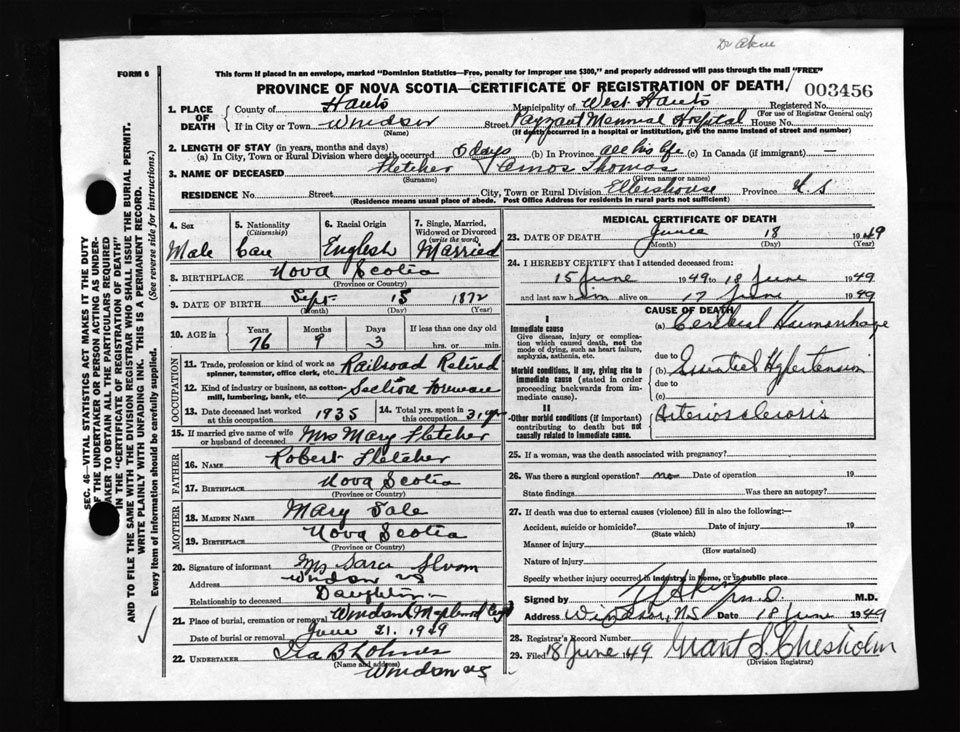 Dr Akin
FORM 6
This form if placed in an envelope, marked "Dominion Statistics—Free, penalty for improper use $300," and properly addressed will pass through the mail "FREE"
PROVINCE OF NOVA SCOTIA—CERTIFICATE OF REGISTRATION OF DEATH
003456
1. PLACE OF DEATH
County of Hants Municipality of West Hants Registered No.
(For use of Registrar General only)
If in City or Town Windsor Street Payzant Memorial Hospital House No.
(Name) (If death occurred in a hospital or institution, give the name instead of street and number)
2. LENGTH OF STAY (in years, months and days)
(a) In City, Town or Rural Division where death occurred 5 days (b) In Province all his life (c) In Canada (if immigrant) —
3. NAME OF DECEASED Fletcher Amos Thomas
(Surname) (Given name or names)
RESIDENCE No. Street City, Town or Rural Division Ellershouse Province N S
(Residence means usual place of abode. Post Office Address for residents in rural parts not sufficient)
4. Sex Male
5. Nationality (Citizenship) Can
6. Racial Origin English
7. Single, Married, Widowed or Divorced (write the word) Married
8. BIRTHPLACE Nova Scotia
(Province or Country)
9. DATE OF BIRTH Sept 15 1872
(Month) (Day) (Year)
10. AGE in Years Months Days If less than one day old
76 9 3 hrs. or min.
OCCUPATION
11. Trade, profession or kind of work as spinner, teamster, office clerk, etc. Railroad Retired
12. Kind of industry or business, as cotton-mill, lumbering, bank, etc. Section Foreman
13. Date deceased last worked at this occupation 1935
14. Total yrs. spent in this occupation 31 yr
15. If married give name of wife or husband of deceased Mrs Mary Fletcher
FATHER
16. NAME Robert Fletcher
17. BIRTHPLACE Nova Scotia
(Province or Country)
MOTHER
18. MAIDEN NAME Mary Sale
19. BIRTHPLACE Nova Scotia
(Province or Country)
20. Signature of informant Mrs
Address Windsor NS
Relationship to deceased Daughter
21. Place of burial, cremation or removal Windsor Maplewood
Date of burial or removal June 21. 1949
22. UNDERTAKER Ira B Lohnes
(Name and address)
Windsor NS
MEDICAL CERTIFICATE OF DEATH
23. DATE OF DEATH June 18 1949
(Month) (Day) (Year)
24. I HEREBY CERTIFY that I attended deceased from:
15 June 1949 to 18 June 1949
and last saw him alive on 17 June 1949
CAUSE OF DEATH
I
Immediate cause
Give disease, injury or complication which caused death, not the mode of dying, such as heart failure, asphyxia, asthenia, etc.
(a) Cerebral Haemorrhage
due to
Morbid conditions, if any, giving rise to immediate cause (stated in order proceeding backwards from immediate cause).
(b) Essential Hypertension
due to
(c)
II
Other morbid conditions (if important) contributing to death but not causally related to immediate cause.
Arteriosclerosis
25. If a woman, was the death associated with pregnancy?
26. Was there a surgical operation? no Date of operation 19
State findings Was there an autopsy?
27. If death was due to external causes (violence) fill in also the following:—
Accident, suicide or homicide? Date of injury 19
(State which)
Manner of injury
(How sustained)
Nature of injury
Specify whether injury occurred in industry, in home, or in public place
Signed by Akin M.D. M.D.
Address Windsor, NS Date 18 June 1949
28. Registrar's Record Number
29. Filed 18 June 1949 Grant S. Chesholm
(Division Registrar)
SEC. 46—VITAL STATISTICS ACT MAKES IT THE DUTY
OF THE UNDERTAKER OR PERSON ACTING AS UNDER-
TAKER TO OBTAIN ALL THE PARTICULARS REQUIRED
IN THE "CERTIFICATE OF REGISTRATION OF DEATH"
AND TO FILE THE SAME WITH THE DIVISION REGISTRAR WHO SHALL ISSUE THE BURIAL PERMIT.
WRITE PLAINLY WITH UNFADING INK. THIS IS A PERMANENT RECORD.
Every item of information should be carefully supplied. (See reverse side for instructions.)